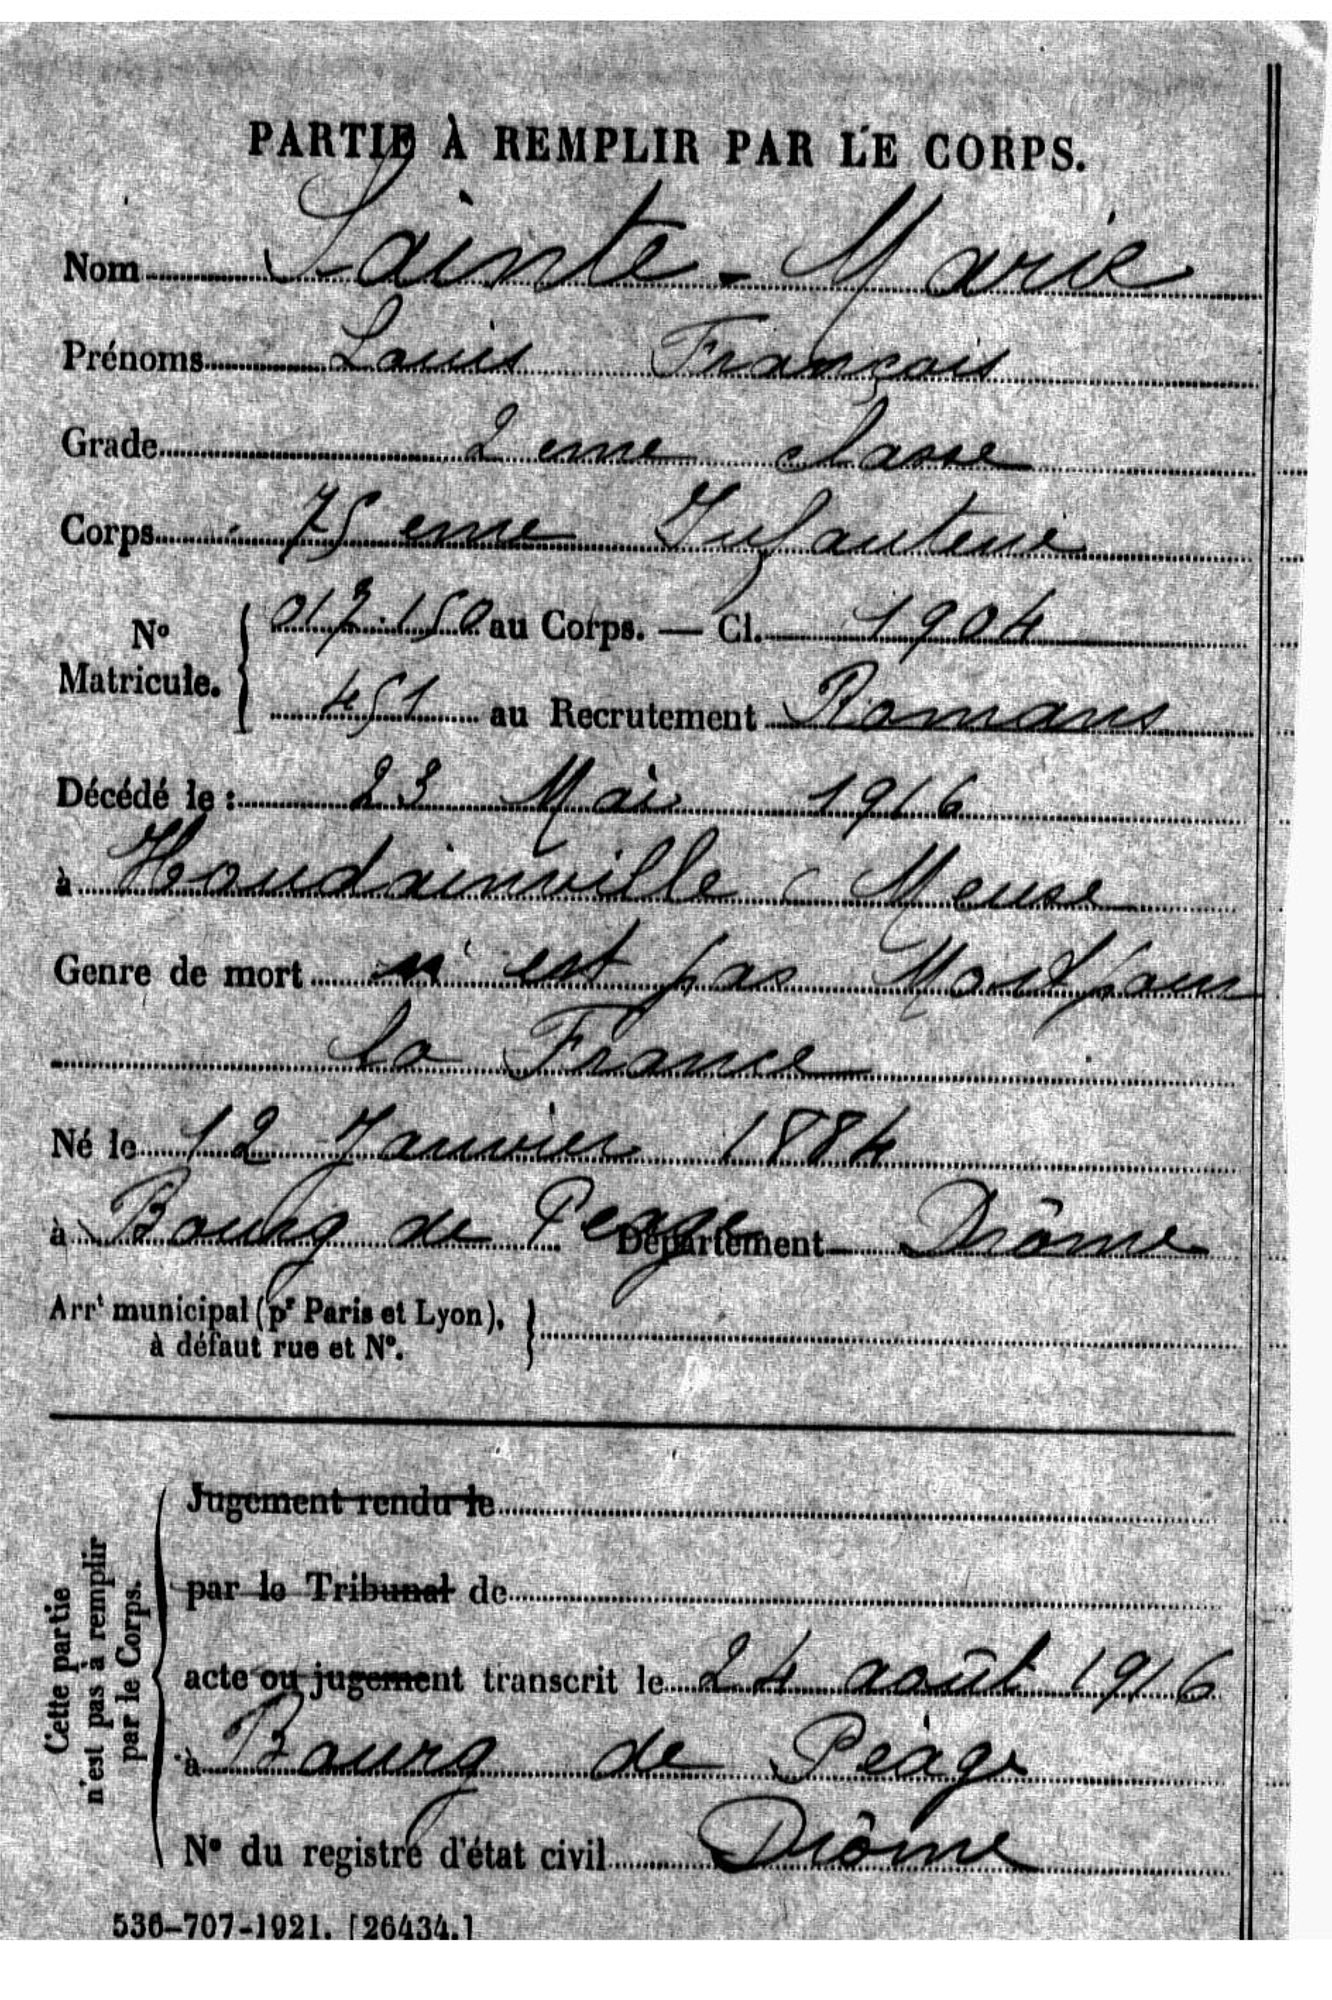 PARTIE À REMPLIR PAR LE CORPS.
Nom Sainte-Marie
Prénoms Louis François
Grade 2 eme classe
Corps 75 eme Infanterie
N° Matricule. { 012.150 au Corps. — Cl. 1904
451 au Recrutement Romans
Décédé le : 23 Mai 1916
à Houdainville ( Meuse
Genre de mort n'est pas Mort pour
la France
Né le 12 Janvier 1884
à Bourg de Peage Département Drôme
Arrt municipal (pr Paris et Lyon),
à défaut rue et N°. }
Cette partie
n'est pas à remplir
par le Corps.
Jugement rendu le
par le Tribunal de
acte ou jugement transcrit le 24 août 1916
à Bourg de Péage
N° du registre d'état civil Drôme
536-707-1921. [26434.]